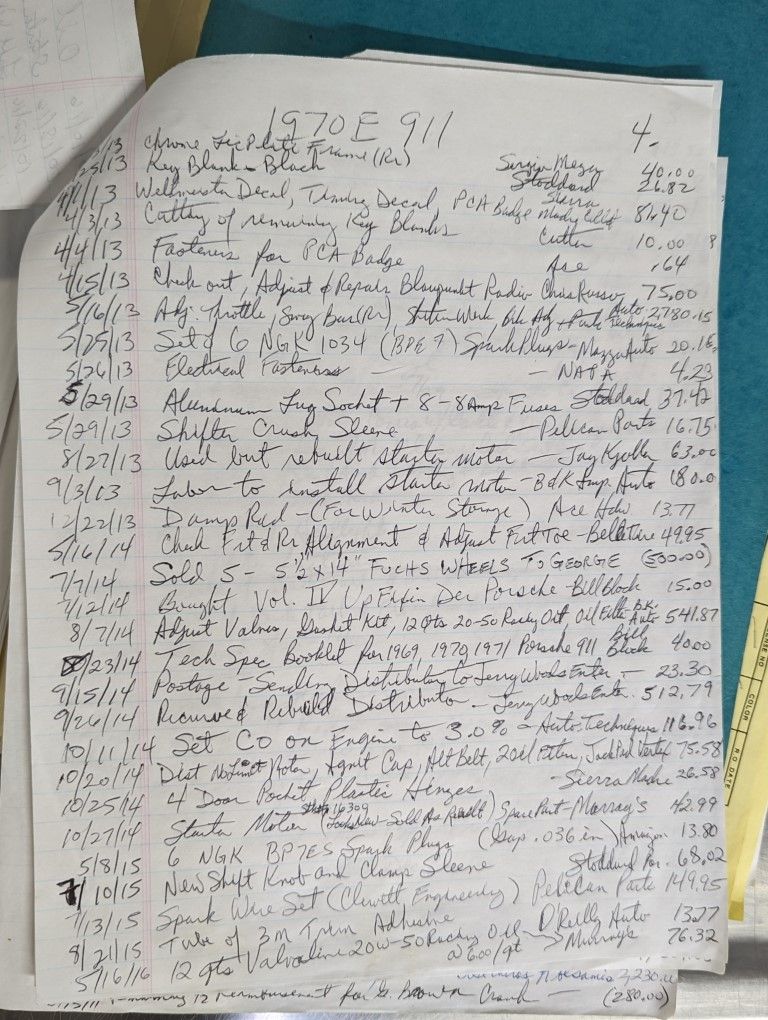 1970 E 911 4.
/13 Chrome Lic Plate Frame (Rr) 40.00
/25/13 Key Blanks Black Stoddard 26.82
4/1/13 Decal, Timing Decal, PCA Badge Sierra 81.40
4/3/13 Cutting of remaining Key Blanks Cutter 10.00 8
4/4/13 Fasteners for PCA Badge Ace .64
4/15/13 Check out, Adjust & Repair Blaupunkt Radio - Chris Russo 75.00
5/16/13 Adj. Throttle, Sway Bar (Rr), Work, Adj + Auto Techniques 2,780.15
5/25/13 Set of 6 NGK 1034 (BPE 7) Spark Plugs - Auto 20.16
5/26/13 Electrical Fasteners — — NAPA 4.23
5/29/13 Aluminum Lug Socket + 8 - 8 Amp Fuses Stoddard 37.42
5/29/13 Shifter Crush Sleeve — Pelican Parts 16.75
8/27/13 Used but rebuilt starter motor — Jay 63.00
9/3/03 Labor to install starter motor - B & K Imp. Auto 180.0
12/22/13 Damp Rid - (For Winter Storage) Ace Hdw 13.77
5/16/14 Check Frt & Rr Alignment & Adjust Frt Toe - Belle Tire 49.95
7/7/14 Sold 5 - 5 1/2 x 14" FUCHS WHEELS TO GEORGE (500.00)
7/12/14 Bought Vol. IV Up Fixin Der Porsche - Bill Block 15.00
8/7/14 Adjust Valves, Gasket Kit, 12 Qts 20-50 Racing Oil, Oil Filter B.K. Auto 541.87
8/23/14 Tech Spec Booklet for 1969, 1970, 1971 Porsche 911 Bill Block 40.00
9/15/14 Postage - Sending Distributor to Jerry Woods Enter. — 23.30
9/26/14 Recurve & Rebuild Distributor - Jerry Woods Enter. 512.79
10/11/14 Set CO on Engine to 3.0% - Auto. Techniques 116.96
10/20/14 Dist No Limit Rotor, Ignit Cap, Alt Belt, 2 Oil Filters, Jack Pad Vertex 75.58
10/25/14 4 Door Pocket Plastic Hinges - Sierra Madre 26.58
10/27/14 Starter Motor 16309 Spare Part - Murray's 42.99
5/8/15 6 NGK BP7ES Spark Plugs (Gap .036 in) Amazon 13.80
7/10/15 New Shift Knob and Clamp Sleeve Stoddard Por. 68.02
7/13/15 Spark Wire Set (Clewett Engineering) Pelican Parts 149.95
8/21/15 Tube of 3M Trim Adhesive O'Reilly Auto 13.77
5/16/16 12 qts Valvoline 20W-50 Racing Oil @ 6.00/qt → Murray's 76.32
2,230.00
1/2 reimbursement for G. Brown Crank — (280.00)
LICENSE NO
COLOR
R.O. DATE